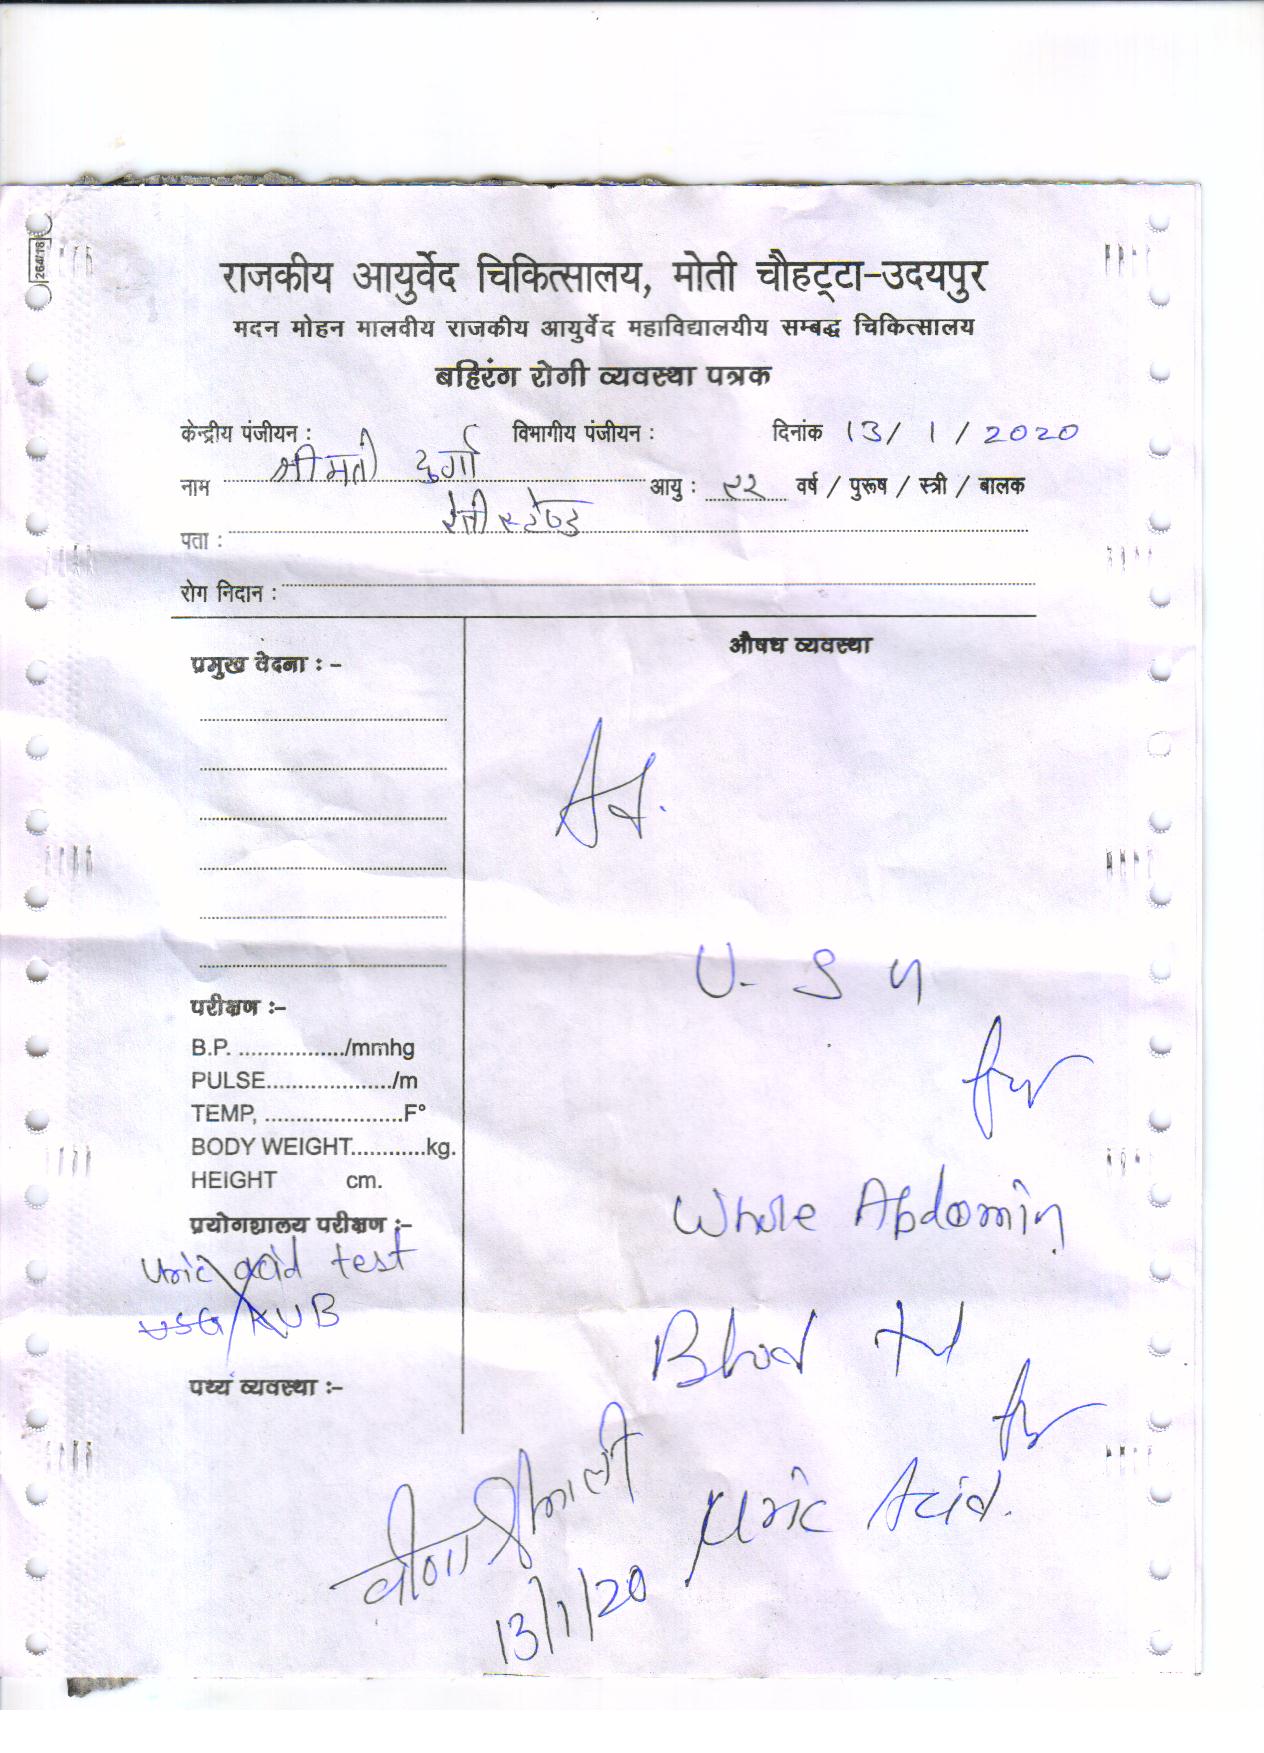 264/18
राजकीय आयुर्वेद चिकित्सालय, मोती चौहट्टा-उदयपुर
मदन मोहन मालवीय राजकीय आयुर्वेद महाविद्यालयीय सम्बद्ध चिकित्सालय
बहिरंग रोगी व्यवस्था पत्रक
केन्द्रीय पंजीयन : विभागीय पंजीयन : दिनांक 13/1/2020
नाम श्रीमती दुर्गा आयु : ९२ वर्ष / पुरूष / स्त्री / बालक
पता : रेती स्टेण्ड
रोग निदान :
प्रमुख वेदना : -
औषध व्यवस्था
Ad.
U. S G
for
Whole Abdomin
Blood
for
Uric Acid.
परीक्षण :-
B.P. ................./mmhg
PULSE..................../m
TEMP, ......................F°
BODY WEIGHT............kg.
HEIGHT cm.
प्रयोगशालय परीक्षण :-
Uric acid test
USG/KUB
पथ्य व्यवस्था :-
वीणा श्रीमाली
13/1/20